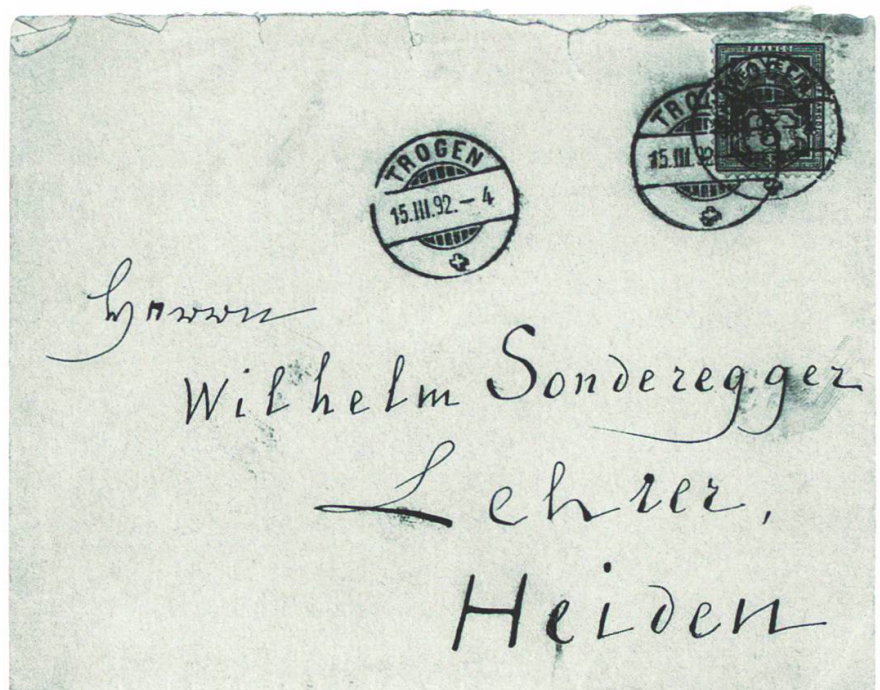 FRANCO
TROGEN
15.III.92.–4
TRO
15.III.92
Herrn
Wilhelm Sonderegger
Lehrer,
Heiden